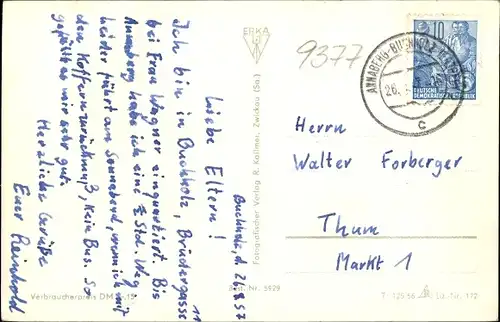 Buchholz, d. 26.8.57
Liebe Eltern!
Ich bin in Buchholz, Brüdergasse 11
bei Frau Wagner einquartiert. Bis
Annaberg habe ich eine ½ Std. Weg
leider fährt am Sonnabend, wenn ich mit
den Koffern zurück muß, kein Bus. So
gefällt es mir sehr gut.
Herzliche Grüße
Euer Reinhold
ERKA
9377
Fotografischer Verlag R. Kallmer, Zwickau (Sa.)
Best.-Nr. 5929
Verbraucherpreis DM 0,15
10
DEUTSCHE
DEMOKRATISCHE REPUBLIK
ANNABERG-BUCHHOLZ
26.
c
Herrn
Walter Forberger
Thum
Markt 1
T. 125 56